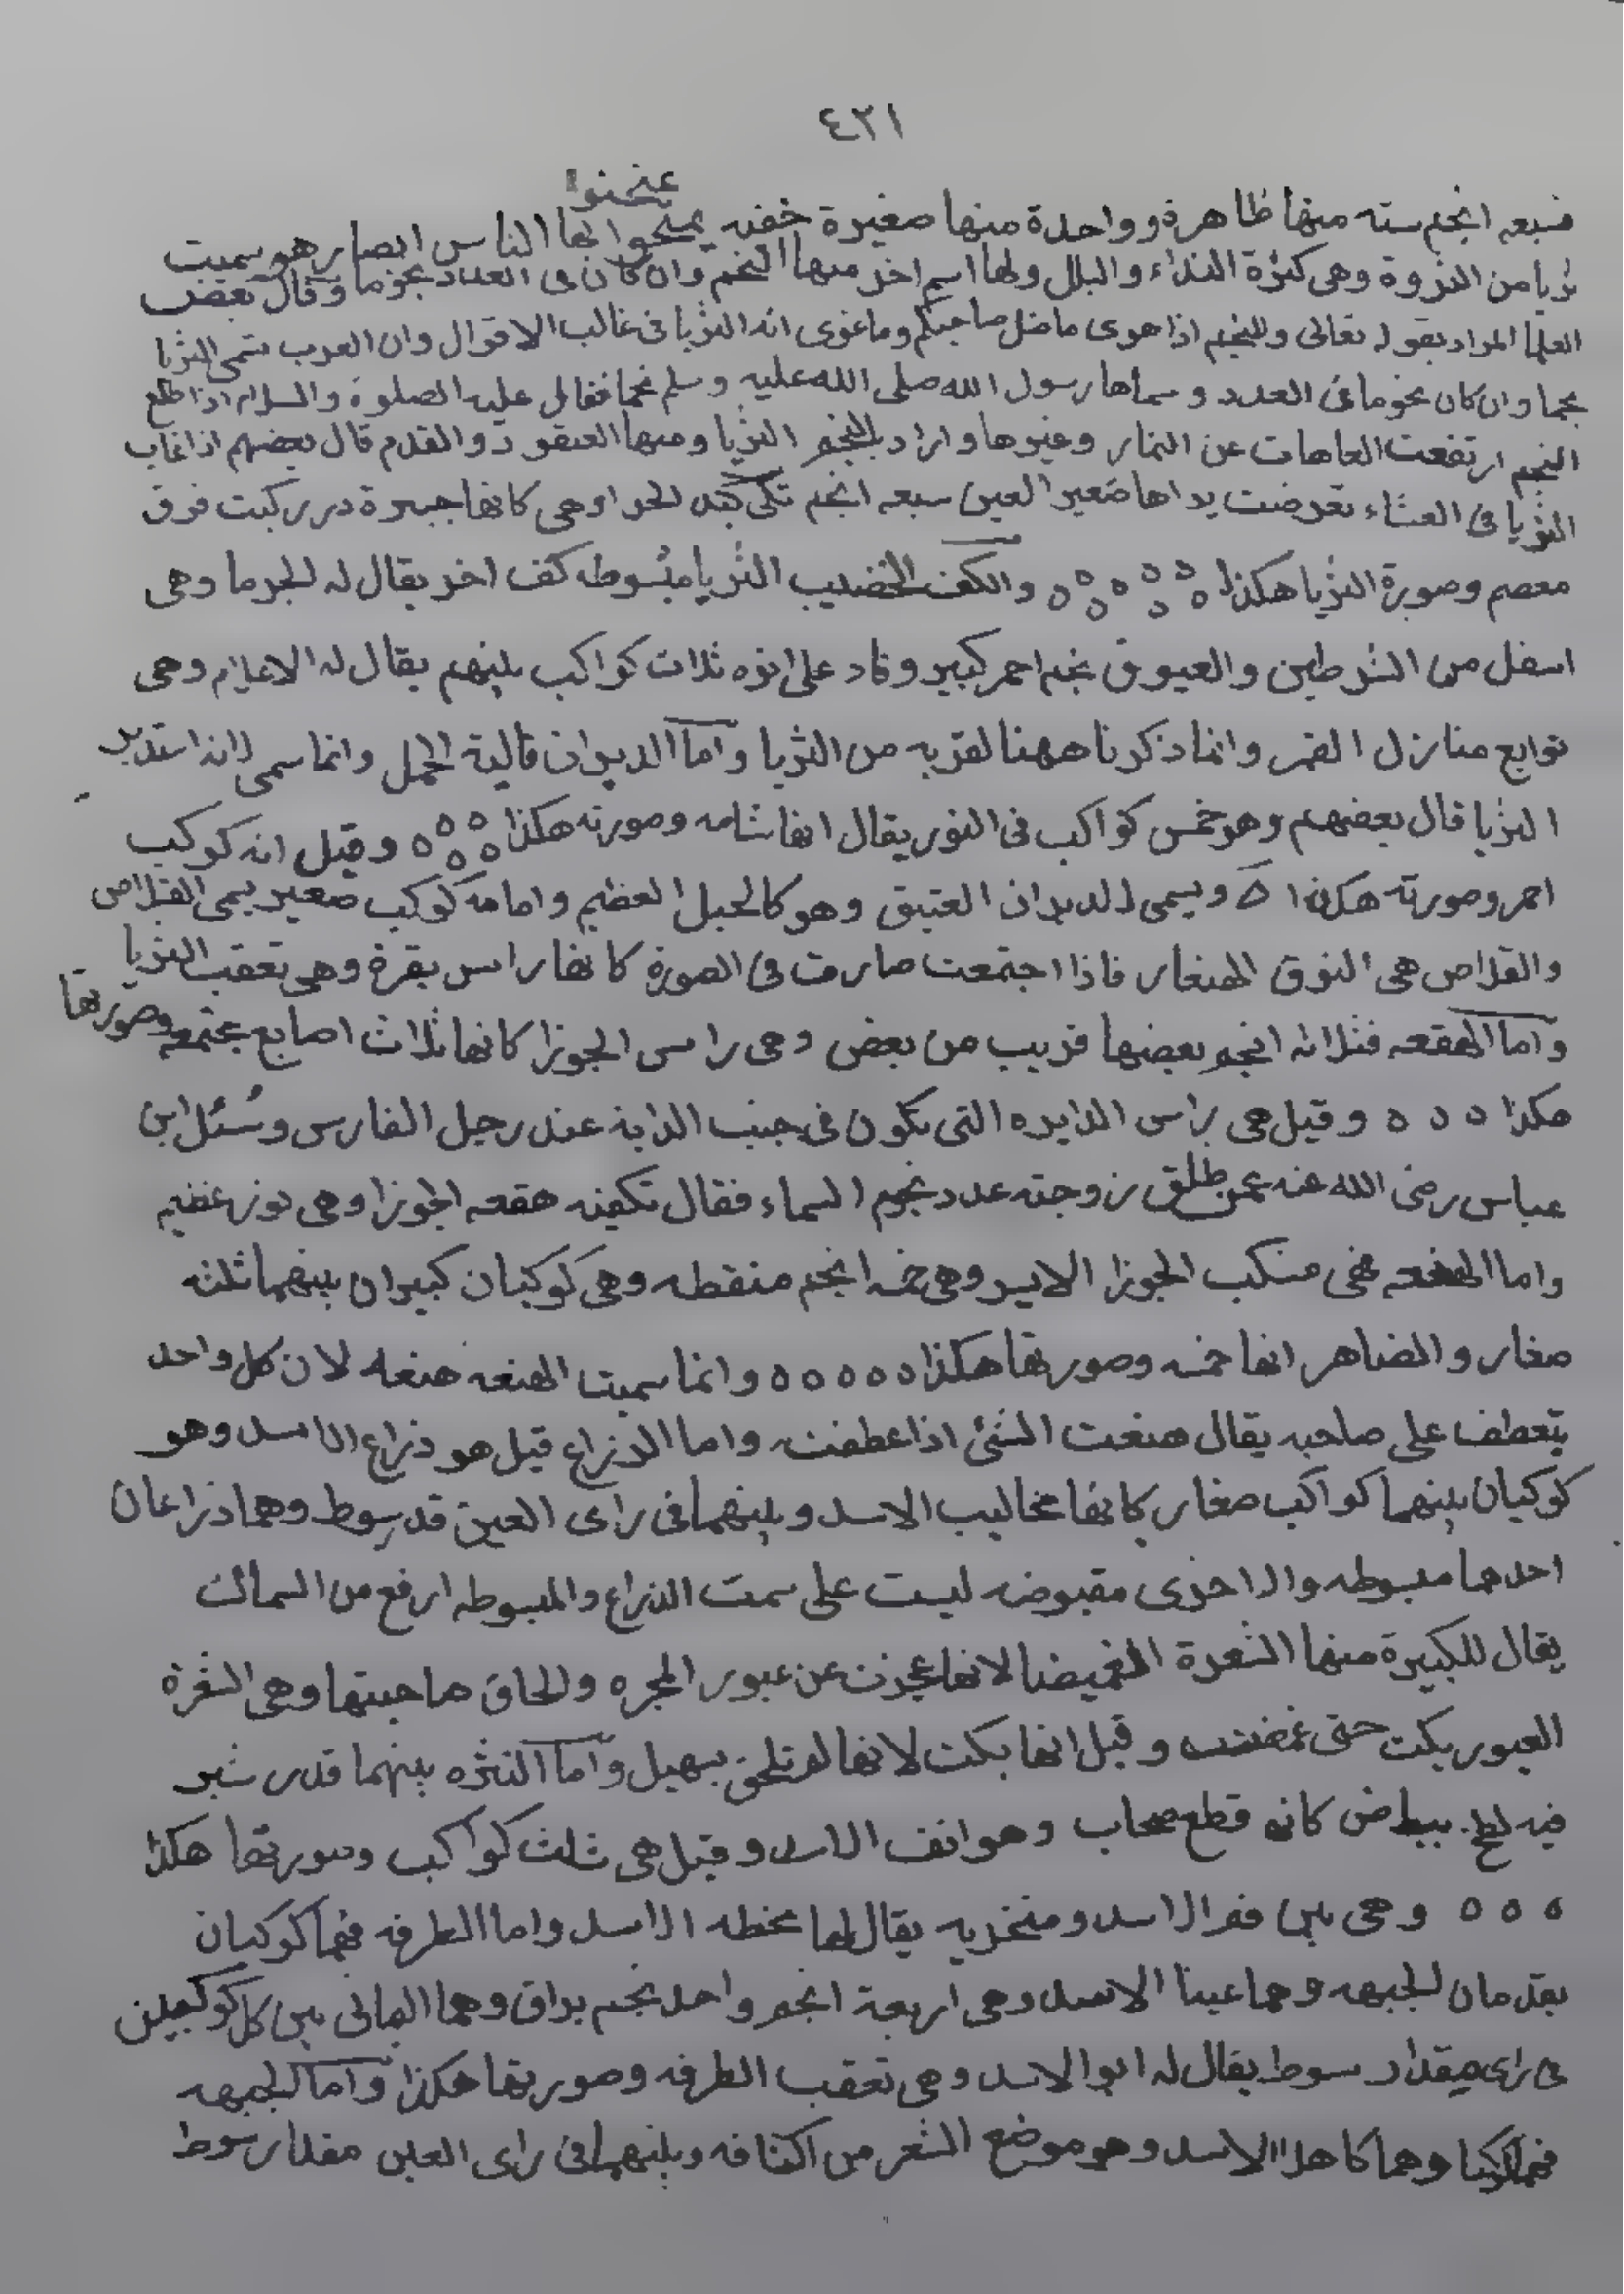 ٤٢١
يمتحنوا
فسبعه انجم سته منها ظاهرة وواحدة منها صغيرة خفيه يمتحنوا بها الناس ابصارهم وسميت
ثريا من الثروة وهى كثرة النداء والبلل ولها اسم اخر منها النجم وان كان فى العدد نجوما وقال بعض
العلما المراد بقوله تعالى والنجم اذا هوى ما ضل صاحبكم وما غوى انه الثريا فى غالب الاقوال وان العرب تسمى الثريا
نجما وان كان نجوما فى العدد وسماها رسول الله صلى الله عليه وسلم نجما فقال عليه الصلوة والسلام اذا طلع
النجم ارتفعت العاهات عن الثمار وغيرها واراد بالنجم الثريا ومنها العنقود والقدم قال بعضهم اذا غاب
الثريا فى العشاء تعرضت يداها صغير العين سبعه انجم وهى كانها جبيرة درر ركبت فوق
معصم وصورة الثريا هكذا ٥ ٥ ٥ ٥ ٥ ٥ ٥ والكف الخضيب الثريا مبسوطه كف اخر يقال له الجرما وهى
اسفل من الشرطين والعيوق نجم احمر كبير وقاد على اثره ثلاث كواكب بينهم يقال له الاعلام وهى
توابع منازل القمر وانما ذكرنا ههنا لقربه من الثريا واما الدبران قالية الحمل وانما سمى لانه استدبر
الثريا قال بعضهم وهو خمس كواكب فى الثور يقال انها شامه وصورته هكذا ٥ ٥ ٥ ٥ ٥ وقيل انه كوكب
احمر وصورته هكذا ٥ ويسمى الدبران العتيق وهو كالحبل العظيم وامامه كوكب صغير يسمى القلاص
والقلاص هى النوق الصغار فاذا اجتمعت صارت فى الصورة كانها راس بقرة وهى تعقب الثريا
واما الهقعه فثلاثه انجم بعضها قريب من بعض وهى راس الجوزا كانها ثلاث اصابع مجتمعه وصورتها
هكذا ٥ ٥ ٥ وقيل هى راس الدايره التى تكون فى جنب الدابة عند رجل الفارس وسُئل ابن
عباس رضى الله عنه عمن طلق زوجته عدد نجوم السماء فقال تكفيه هقعه الجوزا وهى نوز عظيم
واما الهنعه فهى منكب الجوزا الايسر وهى خمسه انجم منقطه وهى كوكبان كبيران بينهما ثلثه
صغار والضاهر انها خمسه وصورتها هكذا ٥ ٥ ٥ ٥ ٥ وانما سميت الهنعه هنعه لان كل واحد
يتعطف على صاحبه يقال هنعت الشئ اذا عطفته واما الذراع قيل هو ذراع الاسد وهو
كوكبان بينهما كواكب صغار كانها مخاليب الاسد وبينهما فى راى العين قد سوط وهما ذراعان
احدهما مبسوطه والاخرى مقبوضه ليست على سمت الذراع والمبسوطه ارفع من السماك
يقال للكبيرة منها الشعرة الغميضا لانها عجزت عن عبور المجره والحاق صاحبتها وهى الشعرة
العبور بكت حتى غمضت وقيل انها بكت لانها لم تلحق بسهيل واما النثره بينهما قدر شبر
فيه لطخ بياض كانه قطع سحاب وهو انف الاسد وقيل هى ثلث كواكب وصورتها هكذا
٥ ٥ ٥ وهى بين فم الاسد ومنخريه يقال لها مخطه الاسد واما الطرفه فهما كوكبان
يقدمان الجبهه وهما عينا الاسد وهى اربعة انجم واحد نجم براق وهما اليمانى بين كل كوكبين
فى راى مقدار سوط يقال له ابوا الاسد وهى تعقب الطرفه وصورتها هكذا واما الجبهه
وهما كاهلا الاسد وهو موضع الشعر من اكتافه وبينهما فى راى العين مقدار سوط